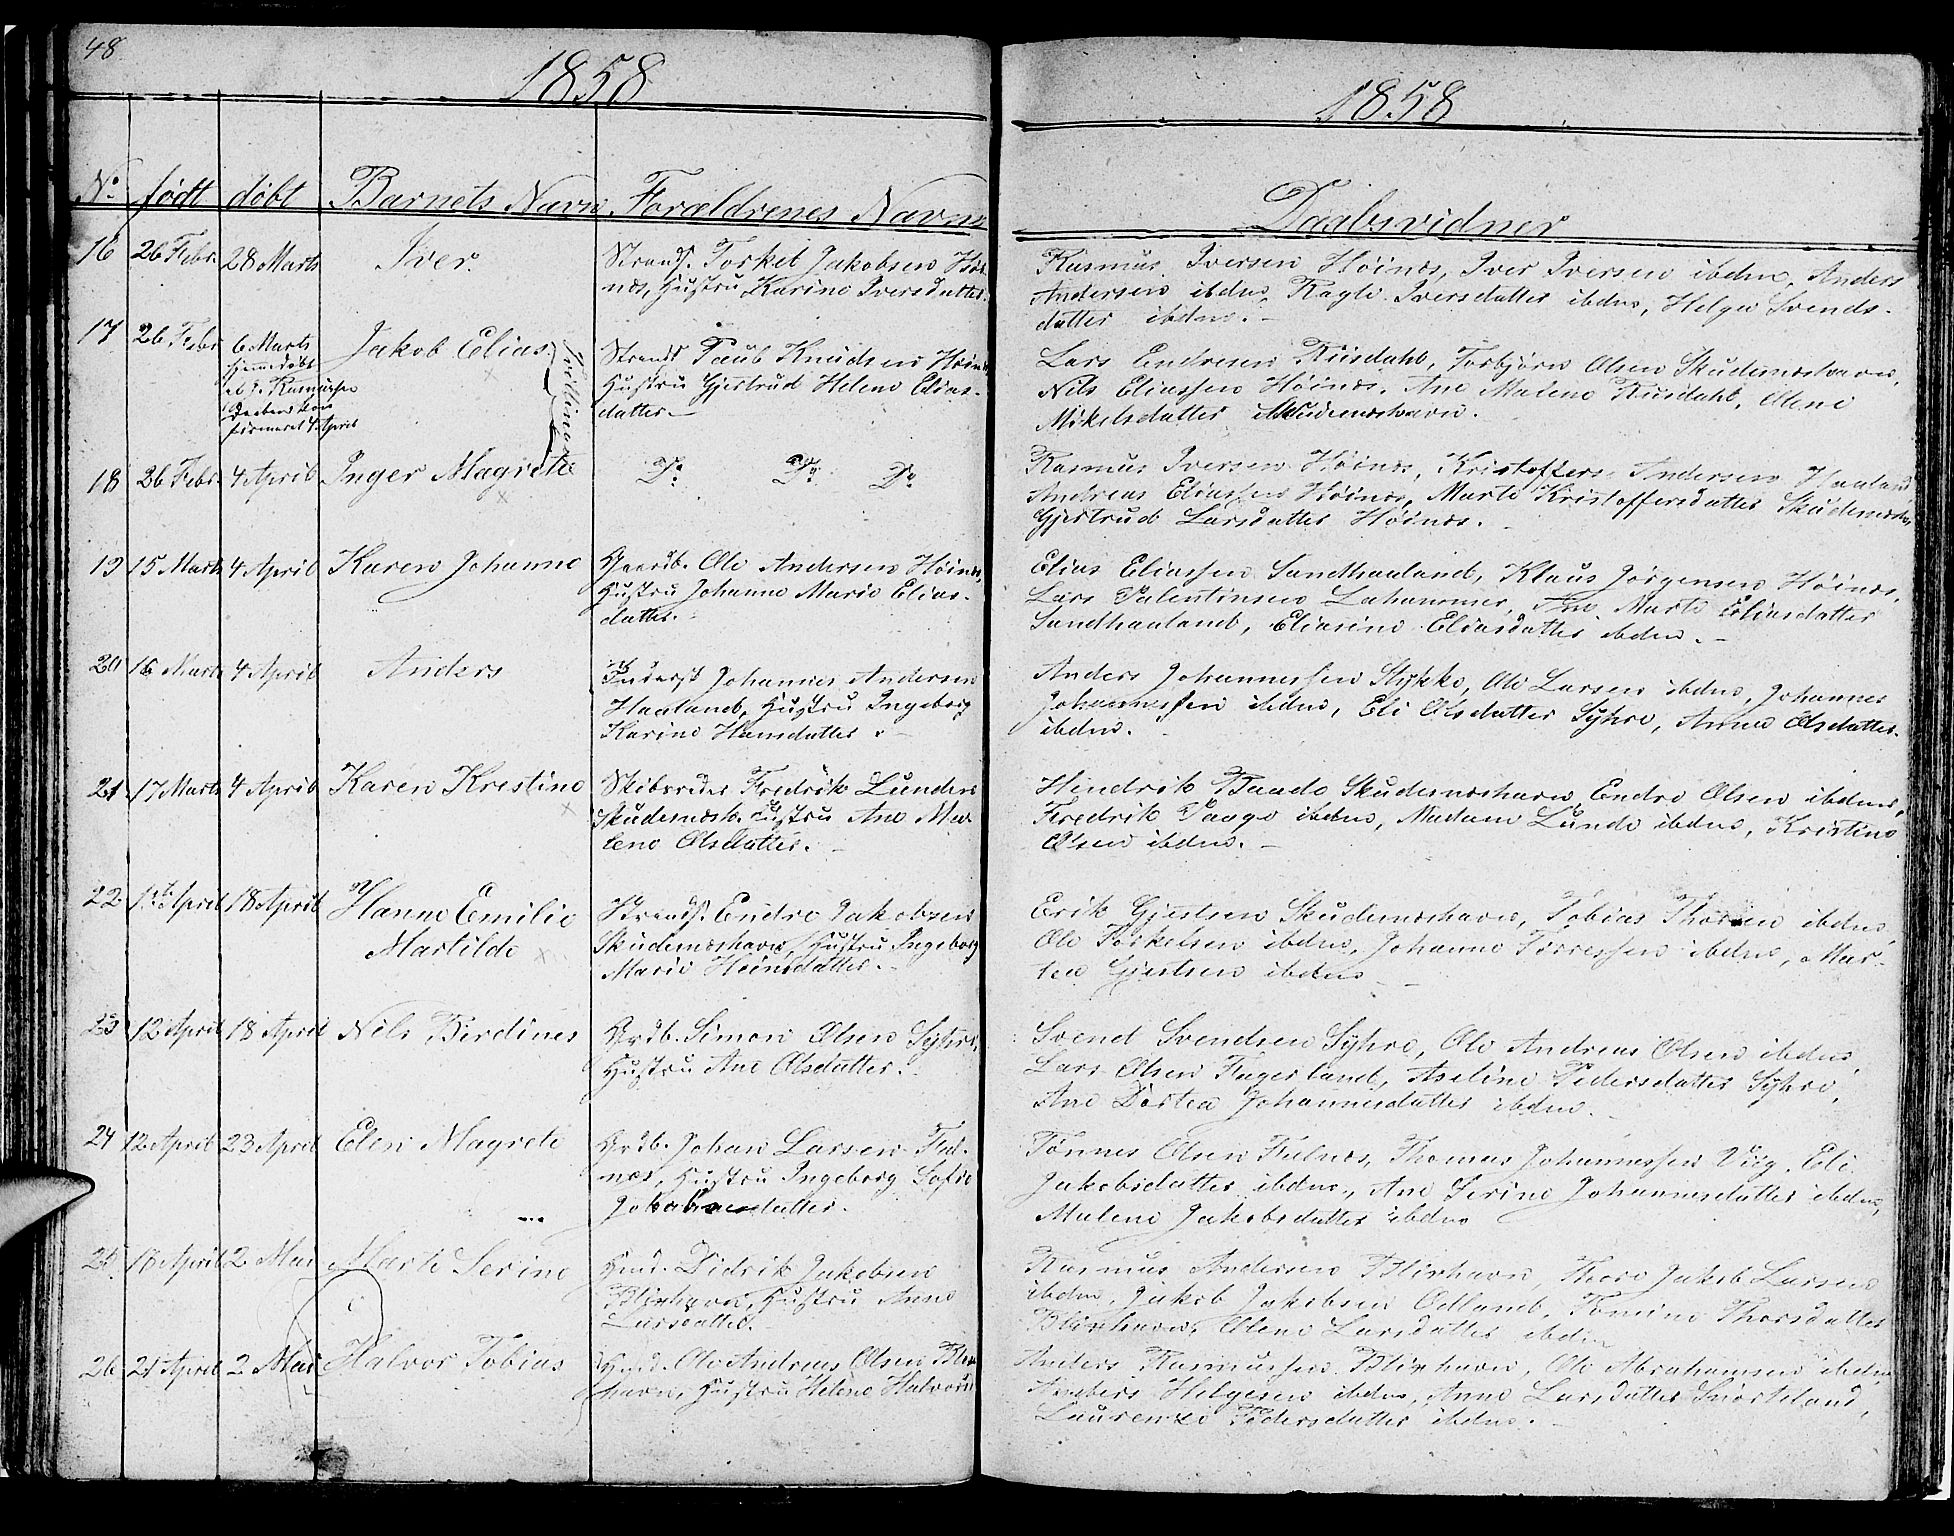 48
1858
No. født døbt Barnets Navn Forældrenes Navne
16 26 Febr. 28 Marts Iver. Strands. Torkel Jakobsen Høi-
nes, Hustru Karine Iversdatter.
17 26 Febr 6 Marts Jakob Elias. Strands Paul Knudsen Høines
Hjemedøbt Hustru Gjertrud Helene Elias-
af J. Rasmussen datter.
Daaben kon-
firmeret 4 April
Tvillinger
18 26 Febr. 4 April Inger Magrete Do Do Do
19 15 Marts 4 April Karen Johanne Gaardb. Ole Andersen Høines,
Hustru Johanne Marie Elias-
datter.
20 16 Marts 4 April Anders Inderst Johannes Andersen
Haaland, Hustru Ingeborg
Karine Hansdatter.
21 17 Marts 4 April Karen Krestine Skibsreder Fredrik Lunden
Skudensh. Hustru Ane Ma-
lene Olsdatter.
22 1ste April 18 April Hanne Emilie Strands. Endre Jakobsen
Martilde Skudeneshavn, Hustru Ingeborg
Marie Heinsdatter.
23 12 April 18 April Nils Birdines Grdb. Simon Olsen Syhre,
Hustru Ane Olsdatter.
24 12 April 23 April Elen Magrete Grdb. Johan Larsen Fal-
nes, Hustru Ingeborg Sofie
datter.
25 18 April 2 Mai Marte Serine Hmd. Didrik Jakobsen
Blixhavn, Hustru Anne
Larsdatter.
26 21 April 2 Mai Halvor Tobias Hmd. Ole Andreas Olsen Blix-
havn, Hustru Helene Halvors
1858
Daabsvidner
Rasmus Iversen Høines, Iver Iversen ibdns, Anders
Andersen ibdns, Ragli Iversdatter ibdns, Helga Svends-
datter ibdns.
Lars Endresen Risdahl, Torbjørn Olsen Skudeneshavn,
Nils Eliassen Høines, Ane Malene Risdahl, Olene
Mikelsdatter Skudeneshavn.
Rasmus Iversen Høines, Kristoffers Andersen Haaland
Andreas Eliassen Høines, Marte Kristoffersdatter Skudenesh
Gjertrud Larsdatter Høines.
Elias Eliassen Sandhaaland, Klaus Jørgensen Høines,
Lars Valentinsen Lahammer, Ane Marte Eliasdatter
Sandhaaland, Eliasine Eliasdatter ibdns.
Anders Johannessen Stykke, Ole Larsen ibdns, Johannes
Johannessen ibdns, Eli Olsdatter Syhre, Anna Olsdatter
ibdns.
Hendrik Baade Skudeneshavn, Endre Olsen ibdns,
Fredrik Vaage ibdns, Madam Lunde ibdns, Kristine
Olsen ibdns.
Erik Gjertsen Skudeneshavn, Tobias Thorsen ibdns,
Ole Torkelsen ibdns, Johanne Torressen ibdns, Mar-
tea Gjertsen ibdns
Svend Svendsen Syhre, Ole Andreas Olsen ibdns,
Lars Olsen Fagerland, Aseline Pedersdatter Syhre,
Ane Dortea Johannesdatter ibdns.
Tønnes Olsen Falnes, Thomas Johannessen Viig, Eli
Jakobsdatter ibdns., Ane Serine Johannesdatter ibdns,
Malene Jakobsdatter ibdns
Rasmus Andersen Blixhavn, Thore Jakob Larsen
ibdns, Jakob Jakobsen Ødland, Tomine Thorsdatter
Blixhavn, Olene Larsdatter ibdn
Anders Rasmussen Blixhavn, Ole Abrahamsen ibdns
Anders Helgesen ibdns, Anne Larsdatter Snørteland,
Laurenze Pedersdatter ibdns.